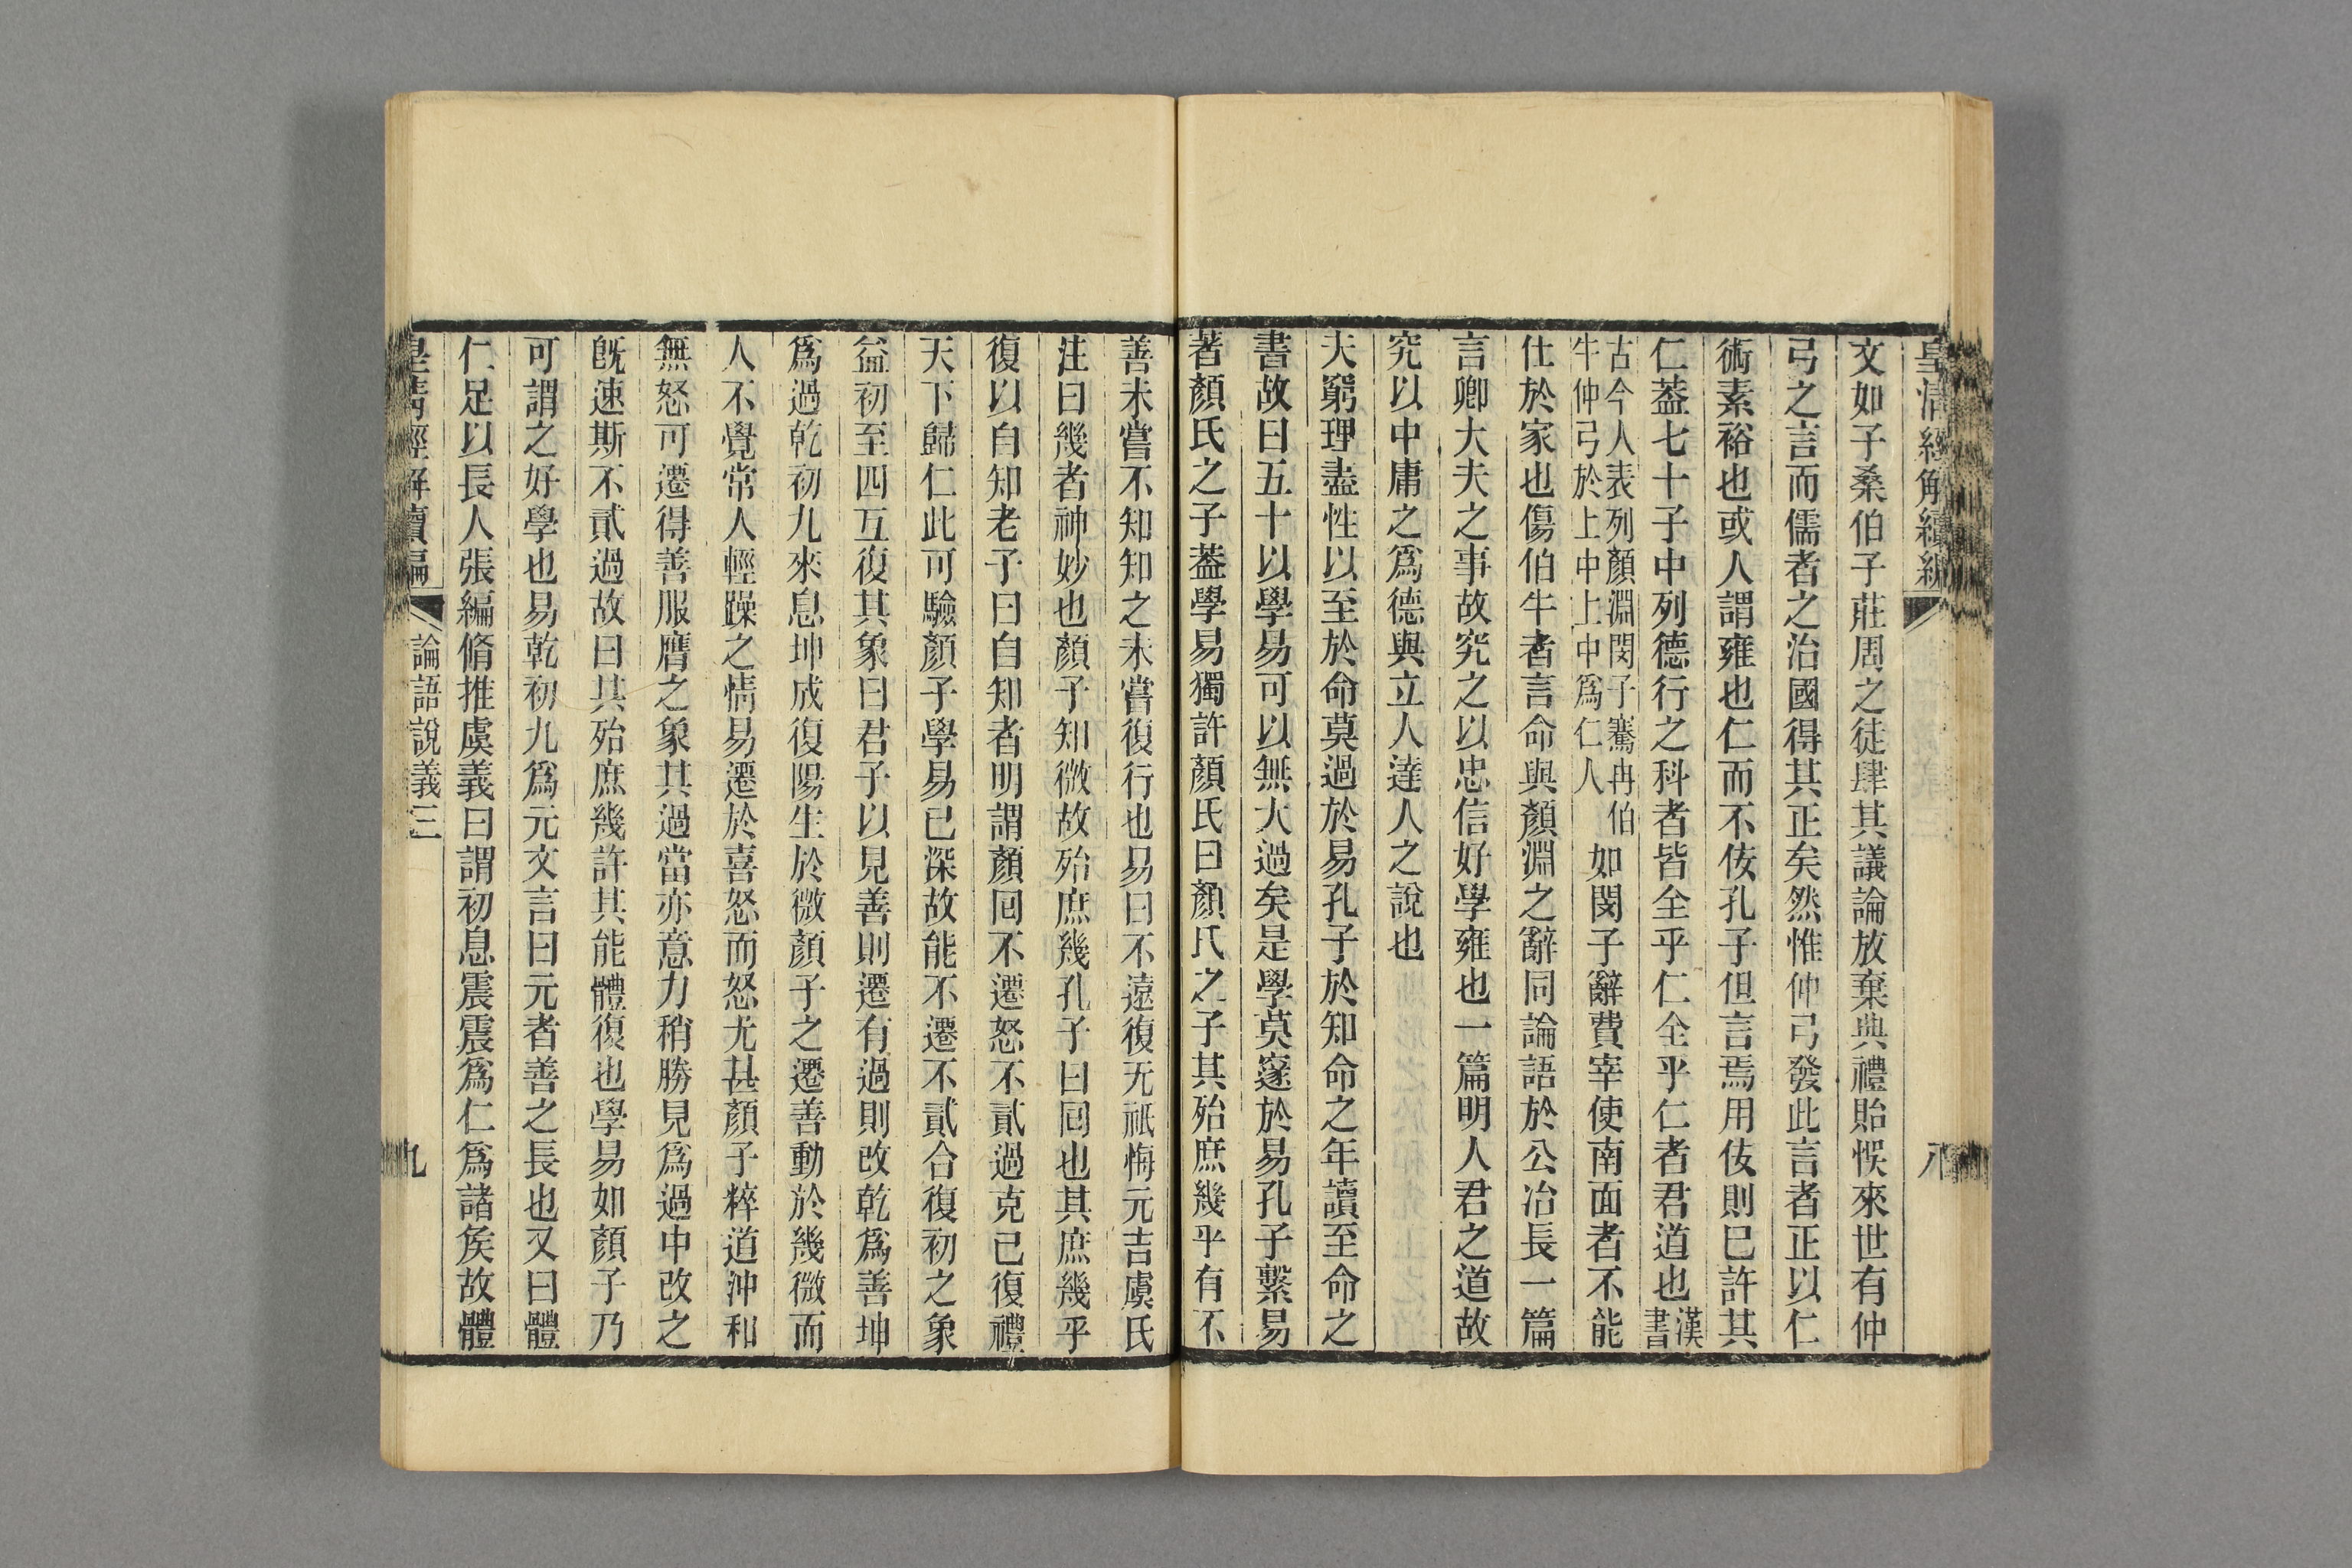 皇清經解續編
八
文如子桑伯子莊周之徒肆其議論放棄典禮貽悞來世有仲
弓之言而儒者之治國得其正矣然惟仲弓發此言者正以仁
術素裕也或人謂雍也仁而不佞孔子但言焉用佞則已許其
仁葢七十子中列德行之科者皆全乎仁全乎仁者君道也漢書
古今人表列顏淵閔子騫冉伯
牛仲弓於上中上中爲仁人
如閔子辭費宰使南面者不能
仕於家也傷伯牛者言命與顏淵之辭同論語於公冶長一篇
言卿大夫之事故究之以忠信好學雍也一篇明人君之道故
究以中庸之爲德與立人達人之說也
夫窮理盡性以至於命莫過於易孔子於知命之年讀至命之
書故曰五十以學易可以無大過矣是學莫邃於易孔子繫易
著顏氏之子葢學易獨許顏氏曰顏氏之子其殆庶幾乎有不
善未嘗不知知之未嘗復行也易曰不遠復无祇悔元吉虞氏
注曰幾者神妙也顏子知微故殆庶幾孔子曰回也其庶幾乎
復以自知老子曰自知者明謂顏回不遷怒不貳過克己復禮
天下歸仁此可驗顏子學易已深故能不遷不貳合復初之象
益初至四互復其象曰君子以見善則遷有過則改乾爲善坤
爲過乾初九來息坤成復陽生於微顏子之遷善動於幾微而
人不覺常人輕躁之情易遷於喜怒而怒尤甚顏子粹道沖和
無怒可遷得善服膺之象其過當亦意力稍勝見爲過中改之
旣速斯不貳過故曰其殆庶幾許其能體復也學易如顏子乃
可謂之好學也易乾初九爲元文言曰元者善之長也又曰體
仁足以長人張編脩推虞義曰謂初息震震爲仁爲諸矦故體
皇清經解續編
論語說義三
九